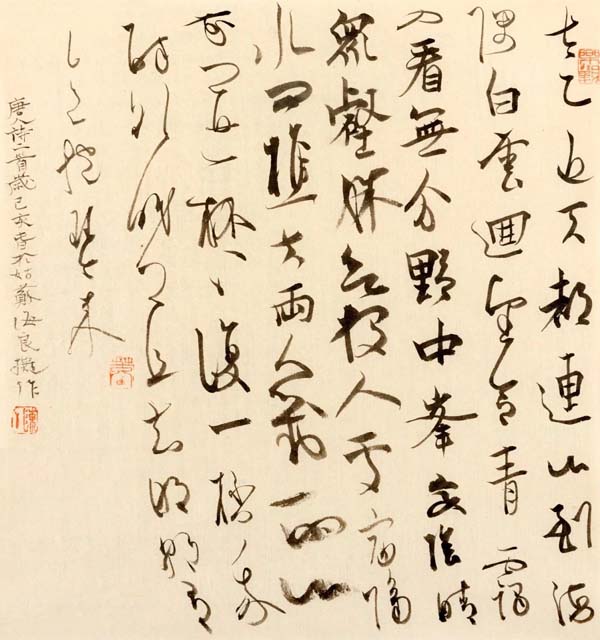 太乙近天都連山到海
隅白雲迴望合青靄
入看無分野中峯變陰晴
眾壑殊欲投人處宿隔
水問樵夫兩人對酌山
花開一杯〻復一杯我
醉欲眠卿且去明朝有
意抱琴來
唐人詩二首歲己亥春於姑蘇海良擬作